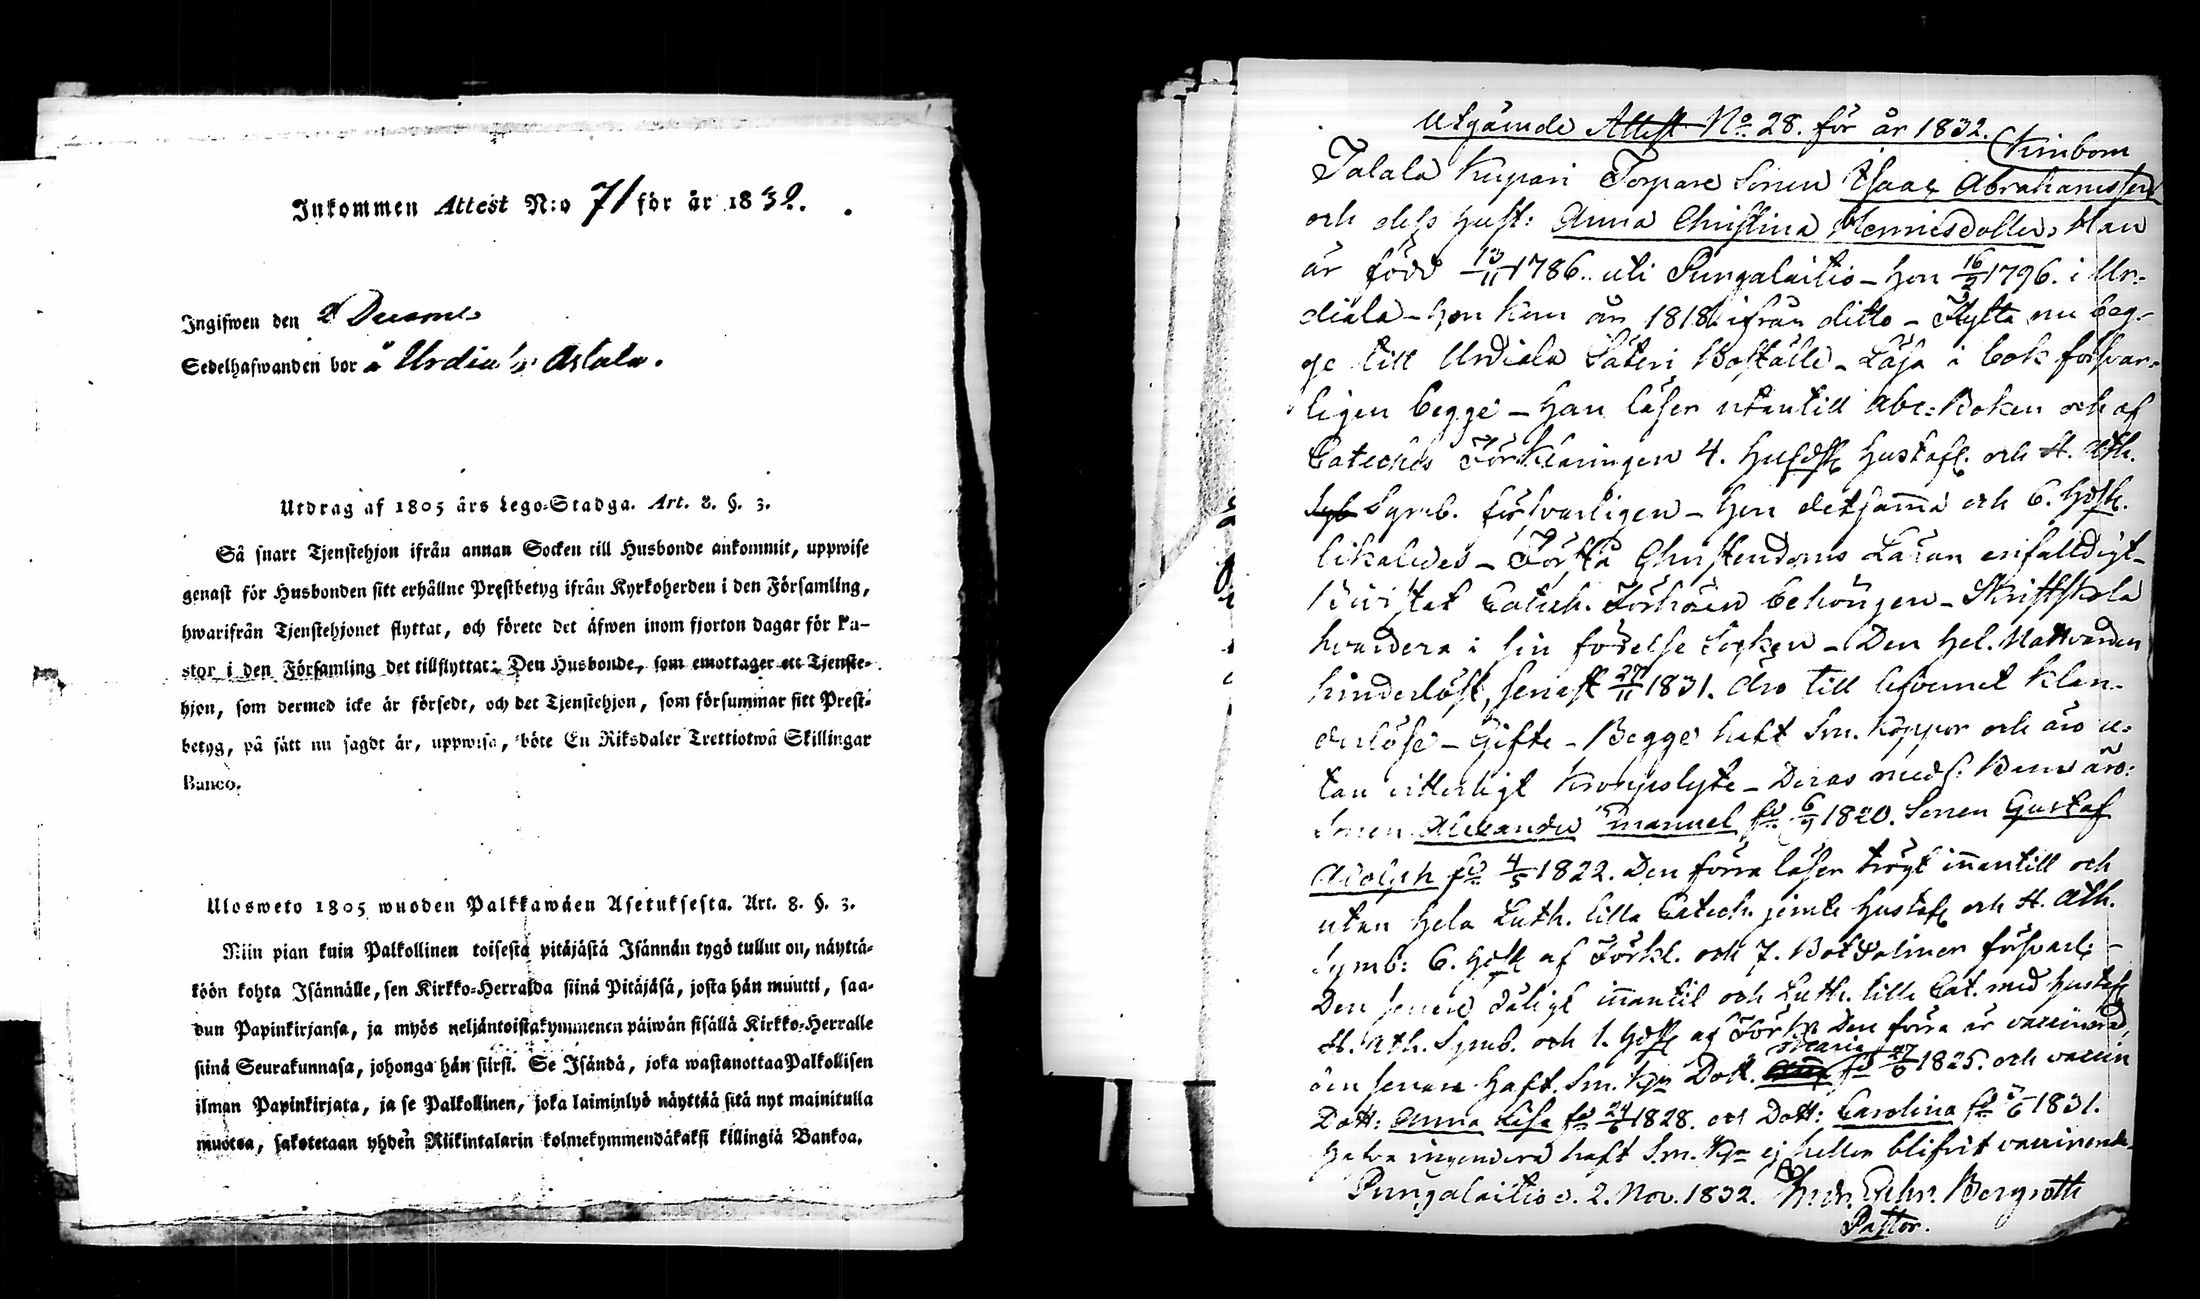 Inkommen Attest N:o 71 för år 1832.
Ingifwen den 2 Decemb
Sedelhafwanden bor å Urdiala Askala.
Utdrag af 1805 års Lego-Stadga. Art. 8. §. 3.
Så snart Tjenstehjon ifrån annan Socken till Husbonde ankommit, uppwise
genast för Husbonden sitt erhållne Prestbetyg ifrån Kyrkoherden i den Församling,
hwarifrån Tjenstehjonet flyttat, och förete det äfwen inom fjorton dagar för Pa-
stor i den Församling det tillflyttat: Den Husbonde, som emottager ett Tjenste-
hjon, som dermed icke är försedt, och det Tjenstehjon, som försummar sitt Prest-
betyg, på sätt nu sagdt är, uppwisa, böte En Riksdaler Trettiotwå Skillingar
Banco.
Ulosweto 1805 wuoden Palkkawäen Asetuksesta. Art. 8. §. 3.
Niin pian kuin Palkollinen toisesta pitäjästä Isännän tygö tullut on, näyttä-
köön kohta Isännälle, sen Kirkko-Herralda siinä Pitäjäsä, josta hän muutti, saa-
dun Papinkirjansa, ja myös neljäntoistakymmenen päiwän sisällä Kirkko-Herralle
siinä Seurakunnasa, johonga hän siirsi. Se Isändä, joka wastanottaa Palkollisen
ilman Papinkirjata, ja se Palkollinen, joka laiminlyö näyttää sitä nyt mainitulla
muotoa, sakotetaan yhden Riikintalarin kolmekymmendäkaksi killingiä Bankoa.
Utgående Attest No 28. för år 1832.
Kinbom
Talala Kupari Torpare Sonen Isaac Abrahamsson
och dess hust: Anna Christina Henricsdotter. Han
är född 13/11 1786. uti Pungalaitio - hon 16/2 1796. i Ur-
diala - hon kom år 1818 ifrån ditto - Flytta nu beg-
ge till Urdiala Säteri Boställe - Läsa i bok försvar-
ligen begge - han läser utantill Abc-Boken och af
Cateches Förklaringen 4. Hufdst Hustafl. och St. Ath.
Symb. försvarligen - hon detsamma och 6. Hdst.
likaledes - Förstå Christendoms Läran enfalldigt -
Bivistat Catech. Förhören behörigen - Skriftskola
hvardera i sin födelse Socken - Den Hel. Nattvarden
hinderlöst, senast 27/11 1831. Äro till lefvernet klan-
derlöse - Gifte - Begge haft Sm. Koppor och äro u-
tan witterligt Kroppslyte - Deras medf: Barn äro:
Sonen Alexander Emanuel fd 6/9 1820. Sonen Gustaf
Adolph fd 4/5 1822. Den förra läser trögt innantill och
utan hela Luth. lilla Catech. jemte Hustafl och St. Ath.
Symb: 6. Hdst af Förkl. och 7. Bot Psalmer försvarl: -
Den senare dåligt innantil och Luth. lilla Cat. med Hustafl
St. Ath. Symb. och 1. Hdst af Förkl. Den förra är vaccinerad,
den senare haft Sm. Kpr Dott. Maria fd 27/6 1825. och vaccin
Dott: Anna Lisa fd 24/6 1828. och Dott: Carolina fd 1831.
Halva ingendera haft Sm. Kpr ej heller blifvit vaccinerade
Pungalaitio d. 2. Nov. 1832. Bergroth
Pastor.